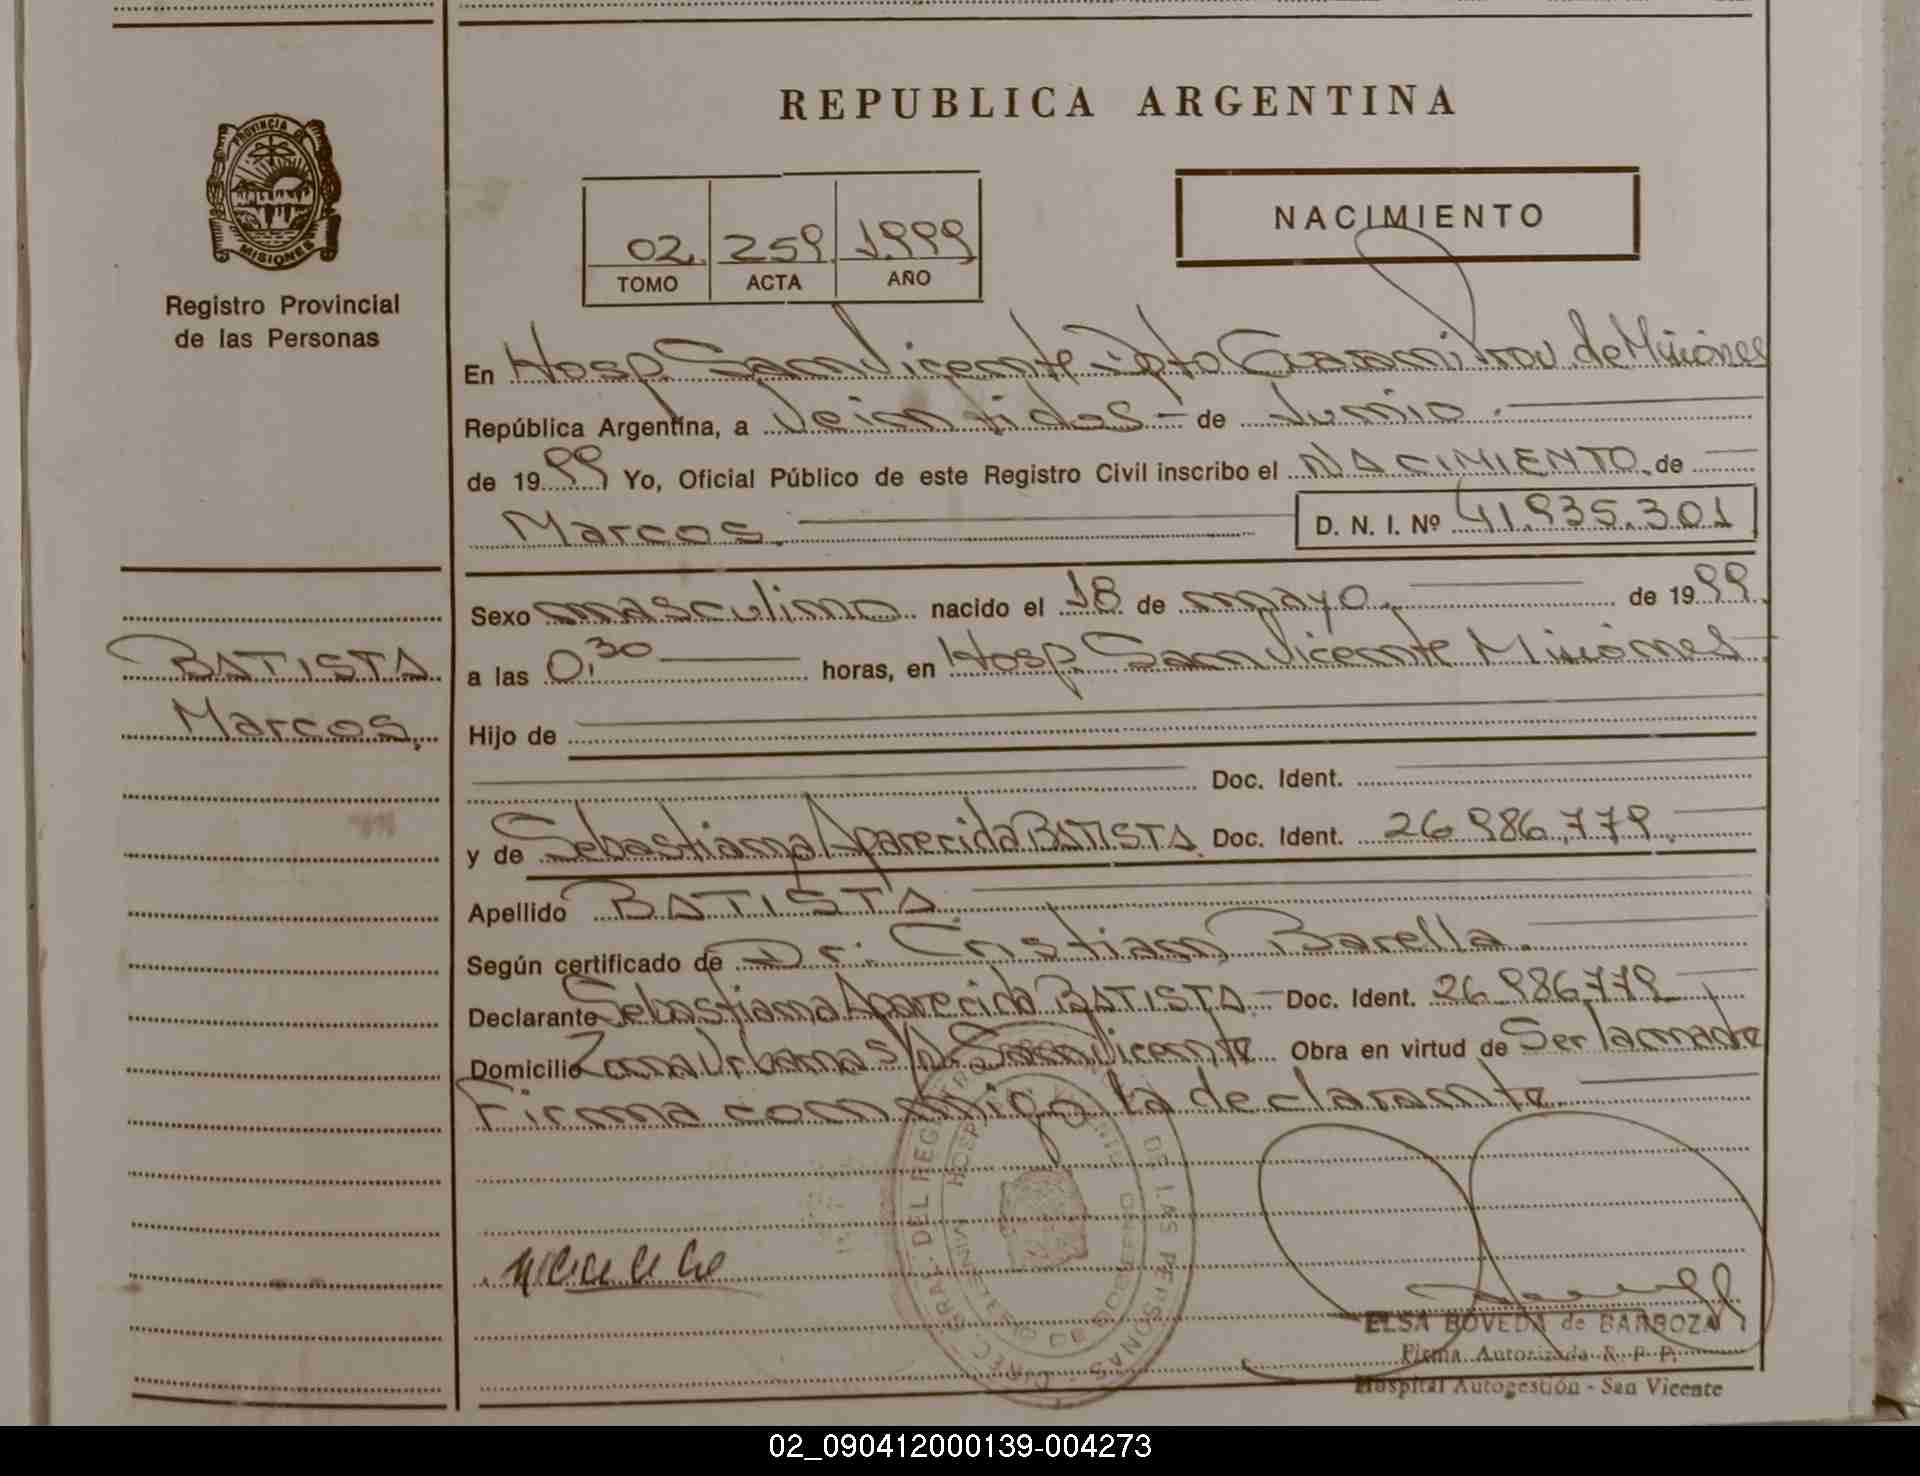 REPUBLICA ARGENTINA
PROVINCIA DE
MISIONES
Registro Provincial
de las Personas
02 259 1999
TOMO ACTA AÑO
NACIMIENTO
En Hosp. San Vicente Dpto Guarani Prov. de Misiones
República Argentina, a Veintidos - de Junio.
de 1999 Yo, Oficial Público de este Registro Civil inscribo el NACIMIENTO de
Marcos. D. N. I. Nº 41.935.301
Sexo masculino nacido el 18 de mayo. de 1999.
BATISTA
Marcos.
a las 0,30 horas, en Hosp. San Vicente Misiones
Hijo de
Doc. Ident.
y de Sebastiana Aparecida BATISTA. Doc. Ident. 26.986.779.
Apellido BATISTA.
Según certificado de Dr. Cristian Barella.
Declarante Sebastiana Aparecida BATISTA - Doc. Ident. 26.986.779
Domicilio Zona Urbana S/N San Vicente Obra en virtud de Ser la madre
Firma conmigo la declarante
ELSA BOVEDA de BARBOZA
Firma Autorizada R. P. P.
Hospital Autogestión - San Vicente
02_090412000139-004273